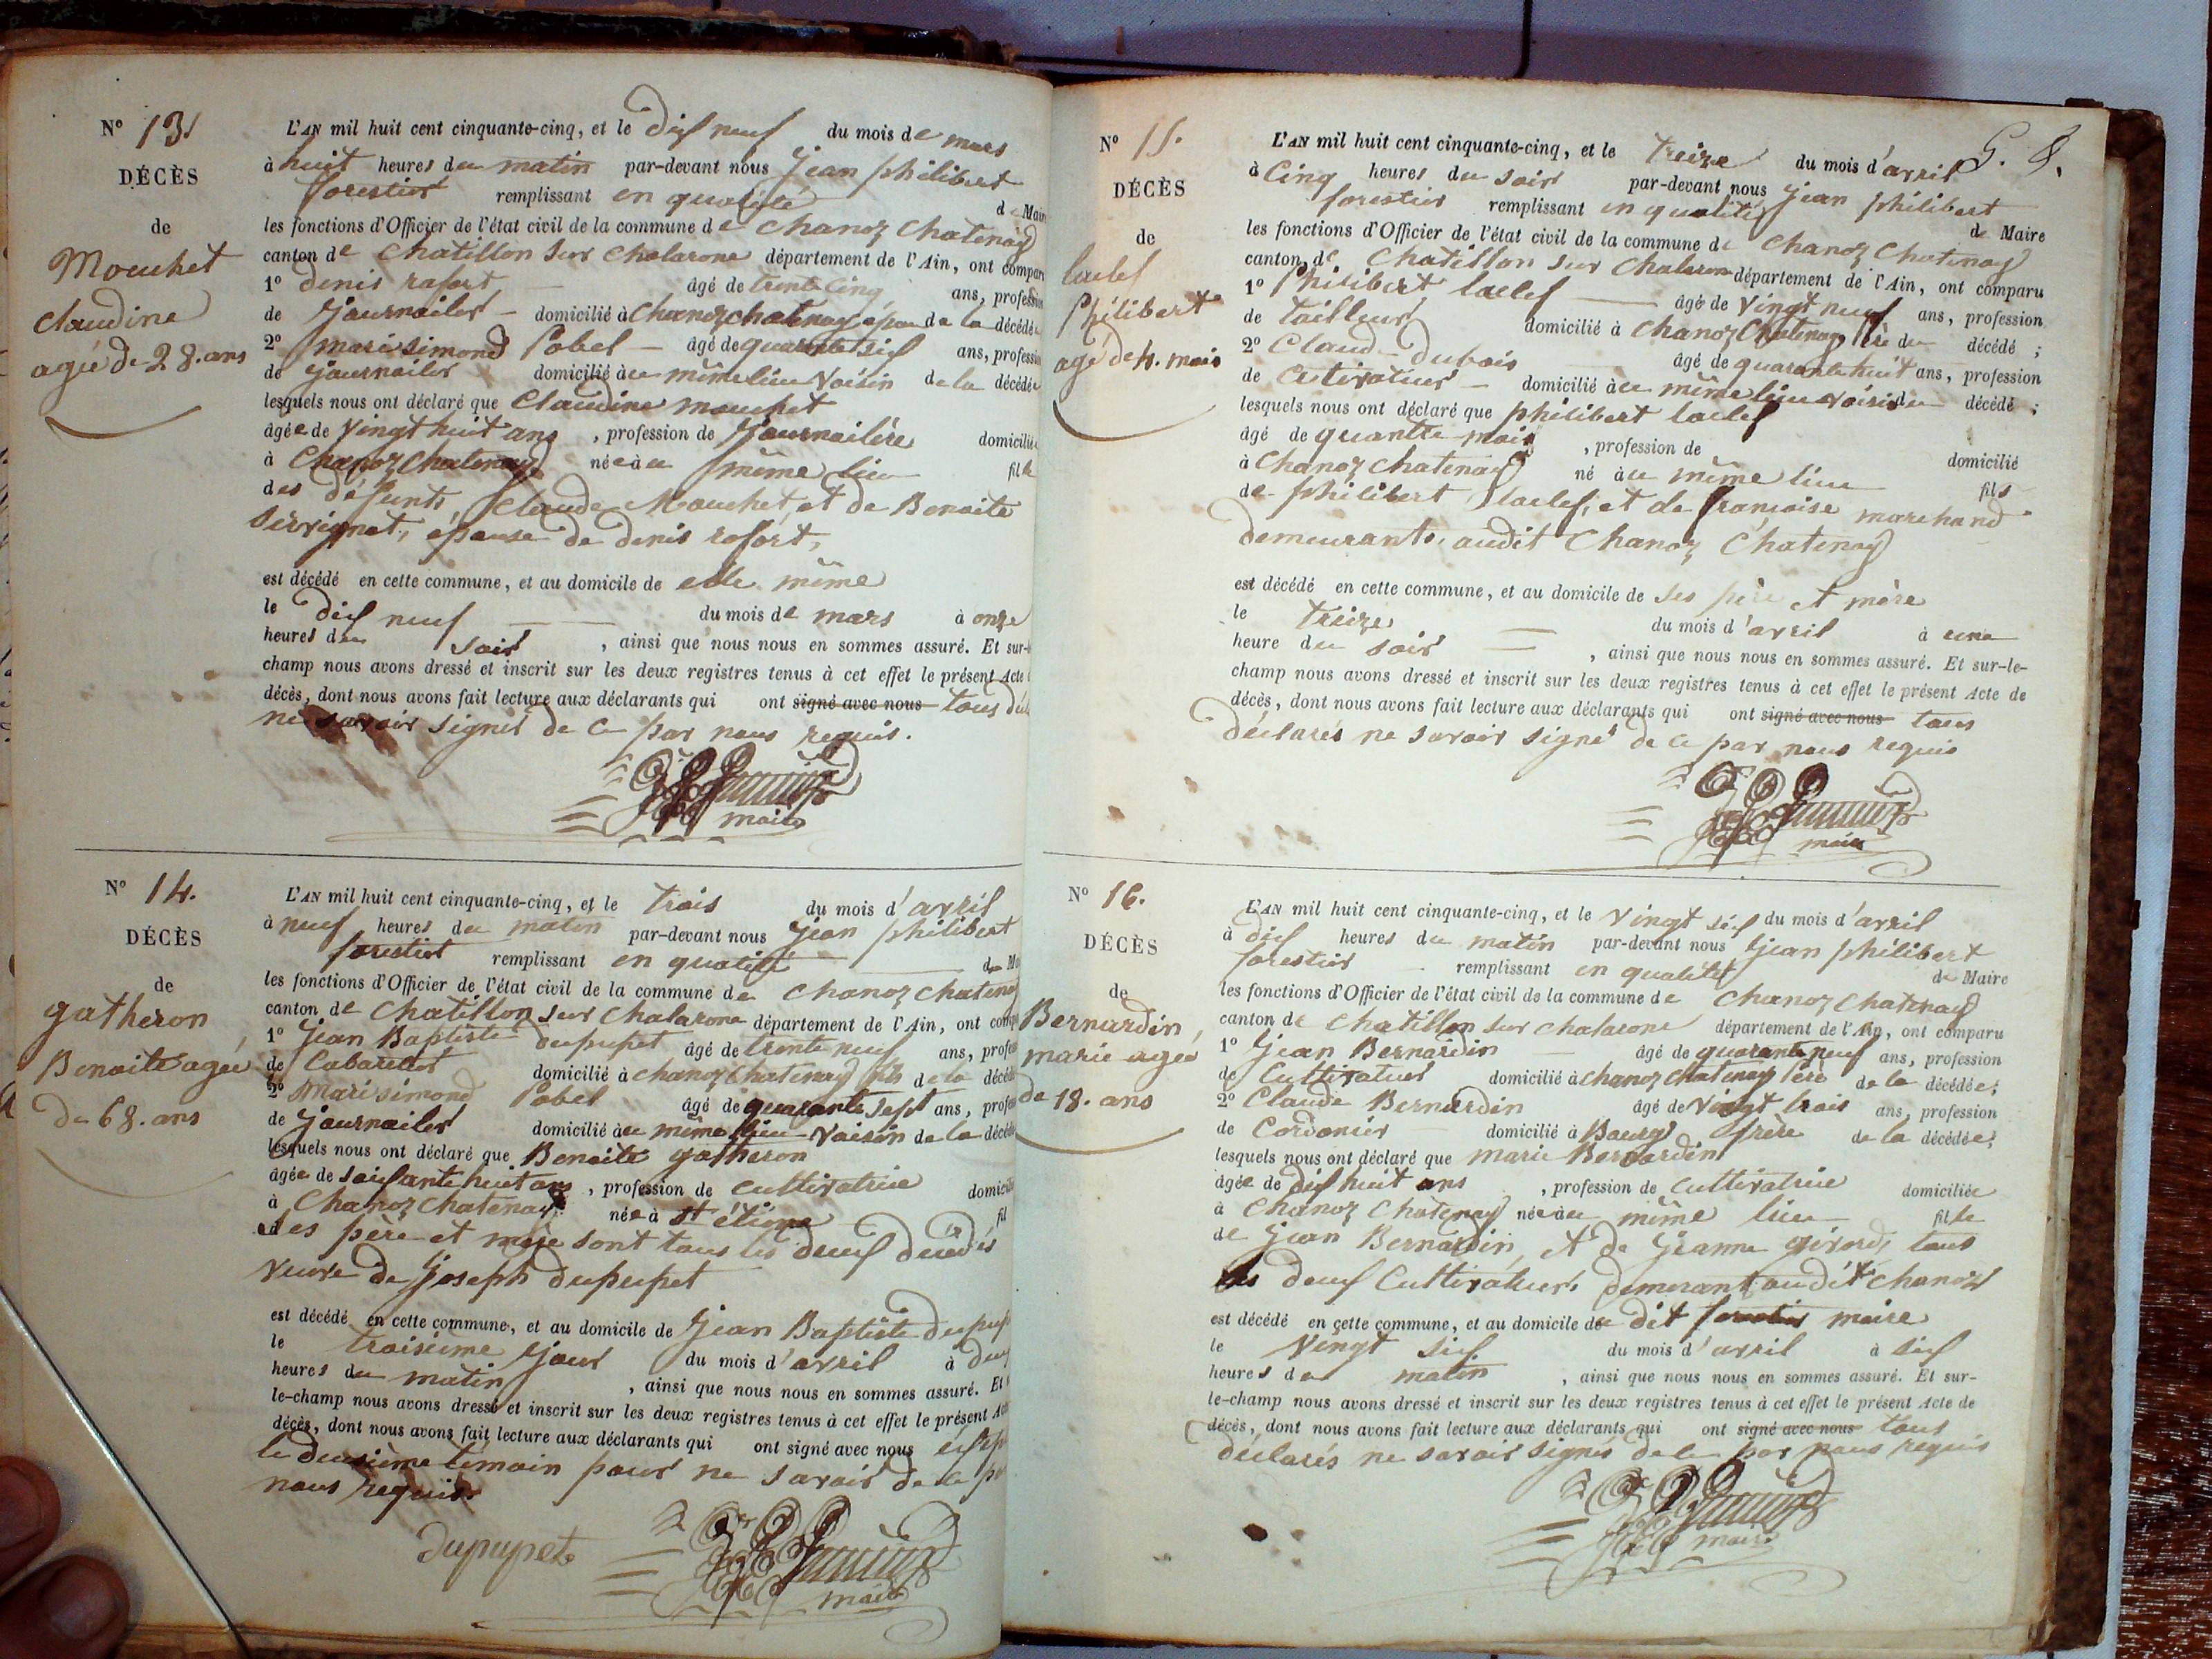 N° 13
DÉCÈS
de
Mouchet
claudine
agée de 28. ans
L'AN mil huit cent cinquante-cinq, et le dix neuf du mois de mars
à huit heures du matin par-devant nous jean philibert
forestier remplissant en qualité de Maire
les fonctions d'Officier de l'état civil de la commune de chanoz chatenay
canton de chatillon sur chalarone département de l'Ain, ont comparu
1° denis rafort âgé de trente cinq ans, profession
de journalier domicilié à chanoz chatenay époux de la décédée
2° marie simond Pobel âgé de quarante six ans, profession
de journalier domicilié au même lieu voisin de la décédée
lesquels nous ont déclaré que Claudine mouchet
âgée de vingt huit ans, profession de journalière domiciliée
à Chanoz chatenay née au même lieu fille
des défunts, claude Mouchet, et de Benoite
servignet, épouse de denis rofort,
est décédé en cette commune, et au domicile de elle même
le dix neuf du mois de mars à onze
heures du soir, ainsi que nous nous en sommes assuré. Et sur-le-
champ nous avons dressé et inscrit sur les deux registres tenus à cet effet le présent Acte
décès, dont nous avons fait lecture aux déclarants qui ont signé avec nous tous
ne savoir signer de ce par nous requis.
maire
N° 14.
DÉCÈS
de
gatheron
Benoite agée
de 68. ans
L'AN mil huit cent cinquante-cinq, et le trois du mois d'avril
à neuf heures du matin par-devant nous jean philibert
forestier remplissant en qualité
les fonctions d'Officier de l'état civil de la commune de chanoz chatenay
canton de chatillon sur chalarone département de l'Ain, ont comparu
1° jean Baptiste dupupet âgé de trente neuf ans, profession
de Cabaretier domicilié à chanoz chatenay fils de la décédée
2° Marie simond Pobel âgé de quarante sept ans, profession
de journalier domicilié au même lieu voisin de la décédée
lesquels nous ont déclaré que Benoite gatheron
âgée de soixante huit ans, profession de cultivatrice domiciliée
à Chanoz chatenay née à st étienne fil
ses père et mère sont tous les deux décédés
veuve de joseph dupupet
est décédé en cette commune, et au domicile de jean Baptiste dupup
le troisième jour du mois d'avril à deux
heures du matin, ainsi que nous nous en sommes assuré. Et
le-champ nous avons dressé et inscrit sur les deux registres tenus à cet effet le présent Acte
décès, dont nous avons fait lecture aux déclarants qui ont signé avec nous
le deuxième témoin pour ne savoir de ce par
nous requis.
dupupet
maire
N° 15.
DÉCÈS
de
laclef
Philibert
agé de 4. mois
L'AN mil huit cent cinquante-cinq, et le treize du mois d'avril
à cinq heures du soir par-devant nous jean philibert
forestier remplissant en qualité de Maire
les fonctions d'Officier de l'état civil de la commune de Chanoz chatenay
canton de chatillon sur chalarone département de l'Ain, ont comparu
1° Philibert laclef âgé de vingt neuf ans, profession
de tailleur domicilié à chanoz chatenay père du décédé;
2° Claude Dubois âgé de quarante huit ans, profession
de cultivateur domicilié au même lieu voisin du décédé;
lesquels nous ont déclaré que philibert laclef
âgé de quantre mois, profession de domicilié
à Chanoz chatenay né au même lieu fils
de philibert laclef, et de francoise marchand
demeurants audit Chanoz Chatenay
est décédé en cette commune, et au domicile de ses père et mère
le treize du mois d'avril à une
heure du soir, ainsi que nous nous en sommes assuré. Et sur-le-
champ nous avons dressé et inscrit sur les deux registres tenus à cet effet le présent Acte de
décès, dont nous avons fait lecture aux déclarants qui ont signé avec nous tous
déclarés ne savoir signer de ce par nous requis
maire
N° 16.
DÉCÈS
de
Bernardin,
marie agée
de 18. ans
L'AN mil huit cent cinquante-cinq, et le vingt six du mois d'avril
à dix heures du matin par-devant nous jean philibert
forestier remplissant en qualité de Maire
les fonctions d'Officier de l'état civil de la commune de chanoz chatenay
canton de chatillon sur chalarone département de l'Ain, ont comparu
1° jean Bernardin âgé de quarante neuf ans, profession
de Cultivateur domicilié à chanoz chatenay père de la décédée;
2° Claude Bernardin âgé de vingt trois ans, profession
de Cordonier domicilié à Bourg frère de la décédée;
lesquels nous ont déclaré que marie Bernardin
âgée de dix huit ans, profession de cultivatrice domiciliée
à Chanoz Chatenay née au même lieu fille
de jean Bernardin, et de jeanne girord, tous
les deux Cultivateurs demeurant audit chanoz
est décédé en cette commune, et au domicile du dit maire
le vingt six du mois d'avril à six
heures du matin, ainsi que nous nous en sommes assuré. Et sur-
le-champ nous avons dressé et inscrit sur les deux registres tenus à cet effet le présent Acte de
décès, dont nous avons fait lecture aux déclarants qui ont signé avec nous tous
déclarés ne savoir signer de ce par nous requis
maire